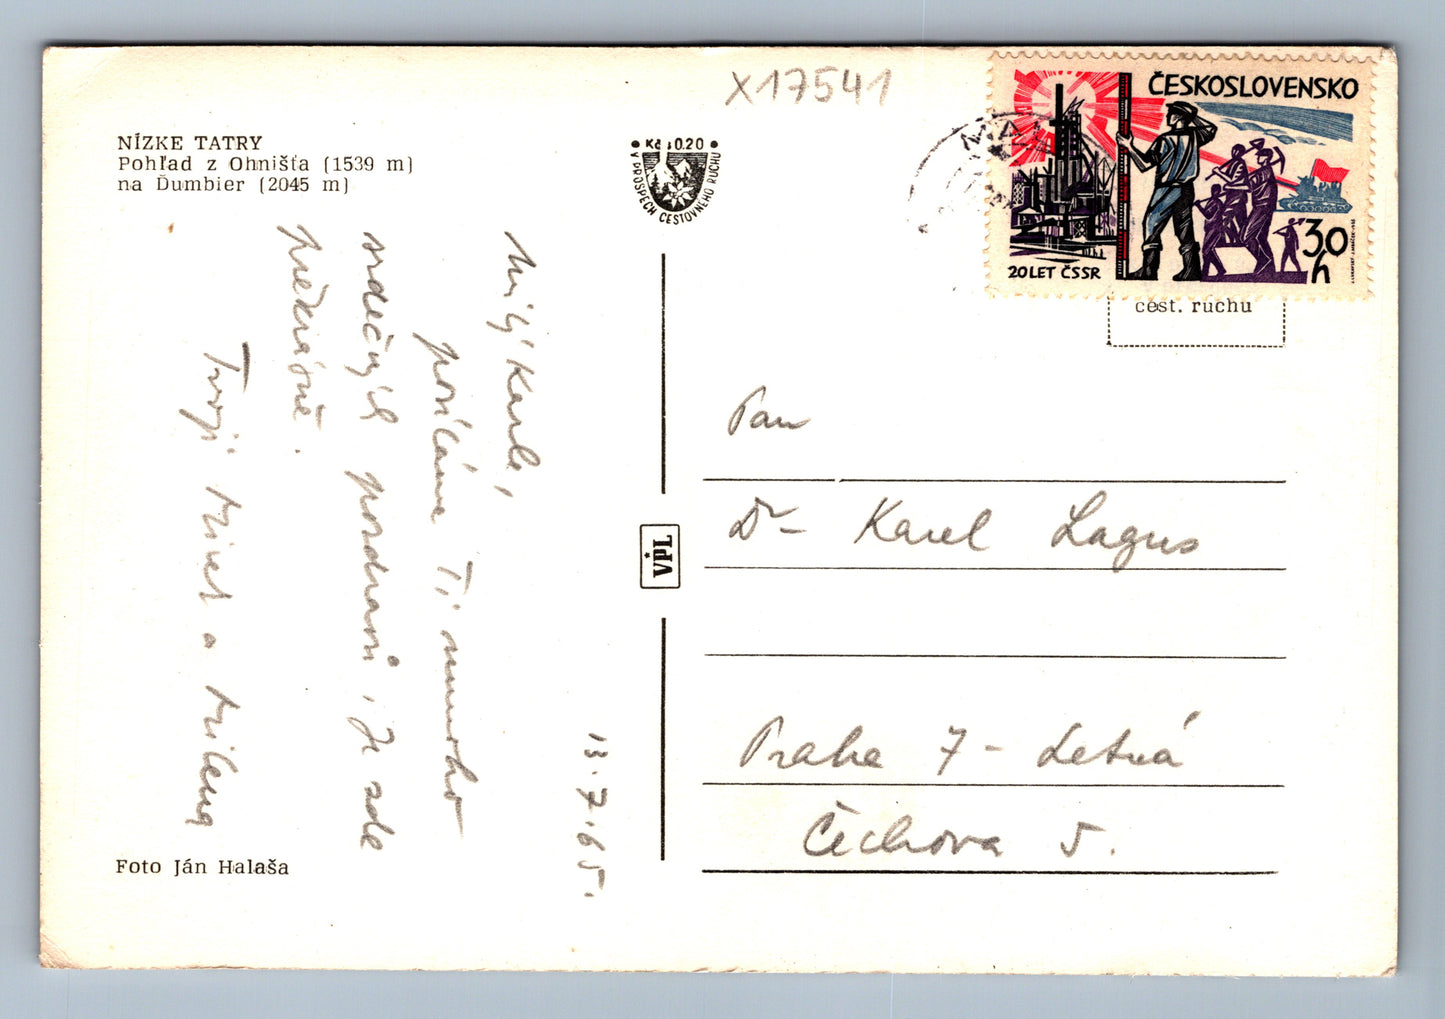 X17541
NÍZKE TATRY
Pohľad z Ohnišťa (1539 m)
na Ďumbier (2045 m)
Kčs 0.20
V PROSPECH CESTOVNÉHO RUCHU
ČESKOSLOVENSKO
20 LET ČSSR
30 h
cest. ruchu
13.7.65.
Milý Karle,
posíláme Ti mnoho
srdečných pozdravů, je zde
překrásně.
Tvoji Mirek a Milena
VPL
Pan
Dr - Karel Lagus
Praha 7 - Letná
Čechova 5.
Foto Ján Halaša